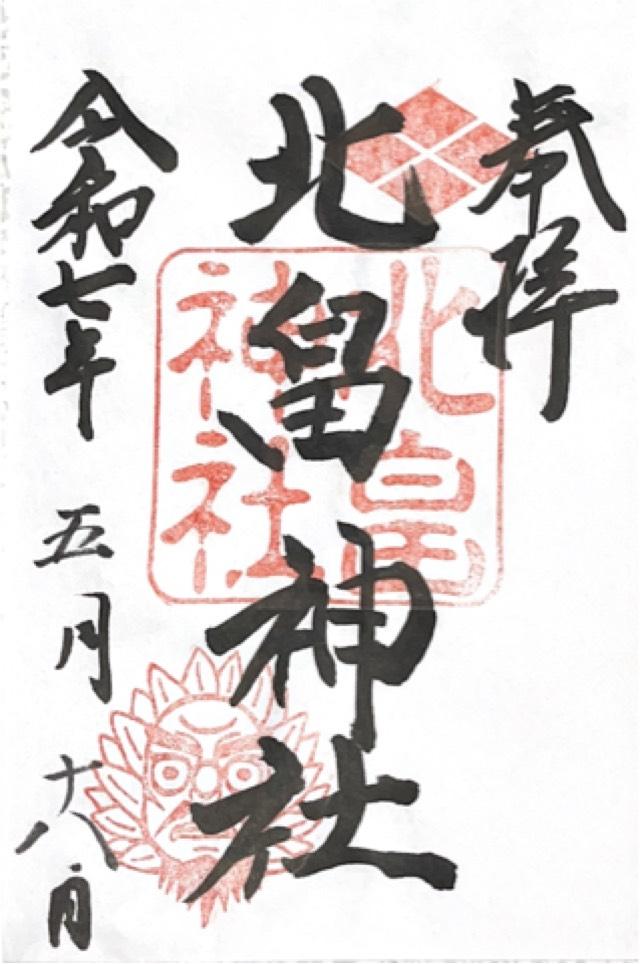 奉拝
北畠神社
北畠
神社
令和七年 五月 十八日